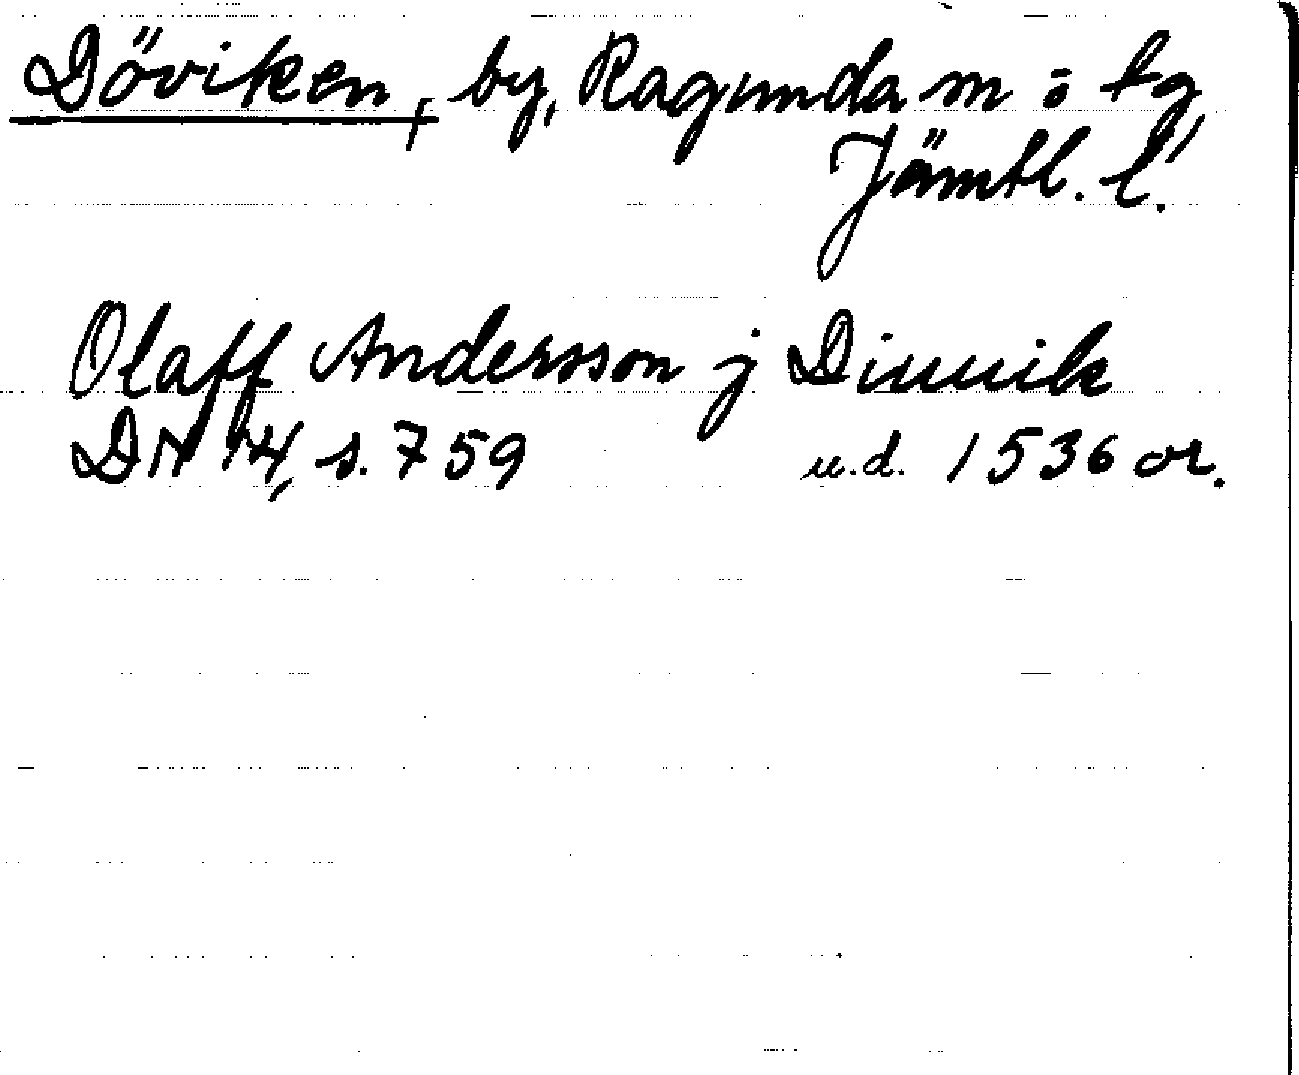 Döviken, by, Ragunda sn o tg,
Jämtl. l.
Olaff Andersson j Diuuik
DN 14, s. 759 u.d. 1536 or.